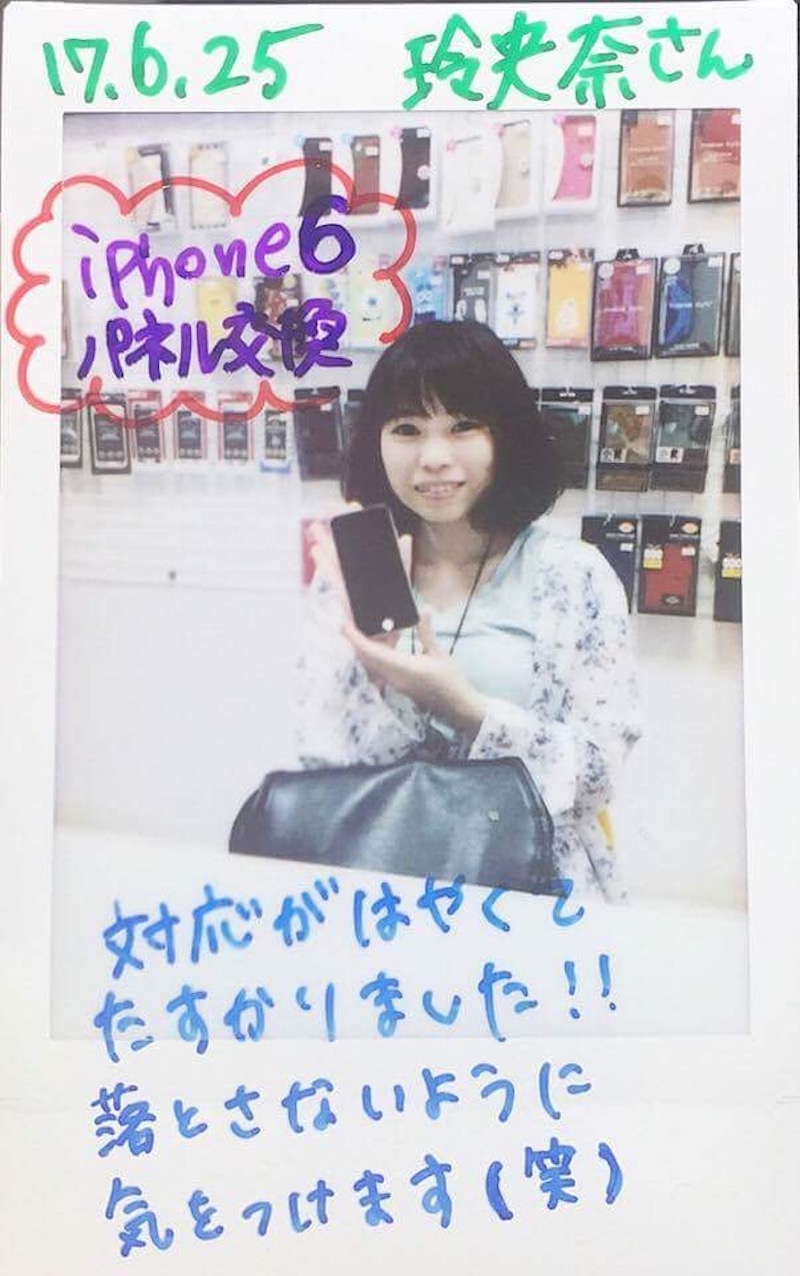 17.6.25 玲央奈さん
iphone6
パネル交換
対応がはやくて
たすかりました!!
落とさないように
気をつけます(笑)